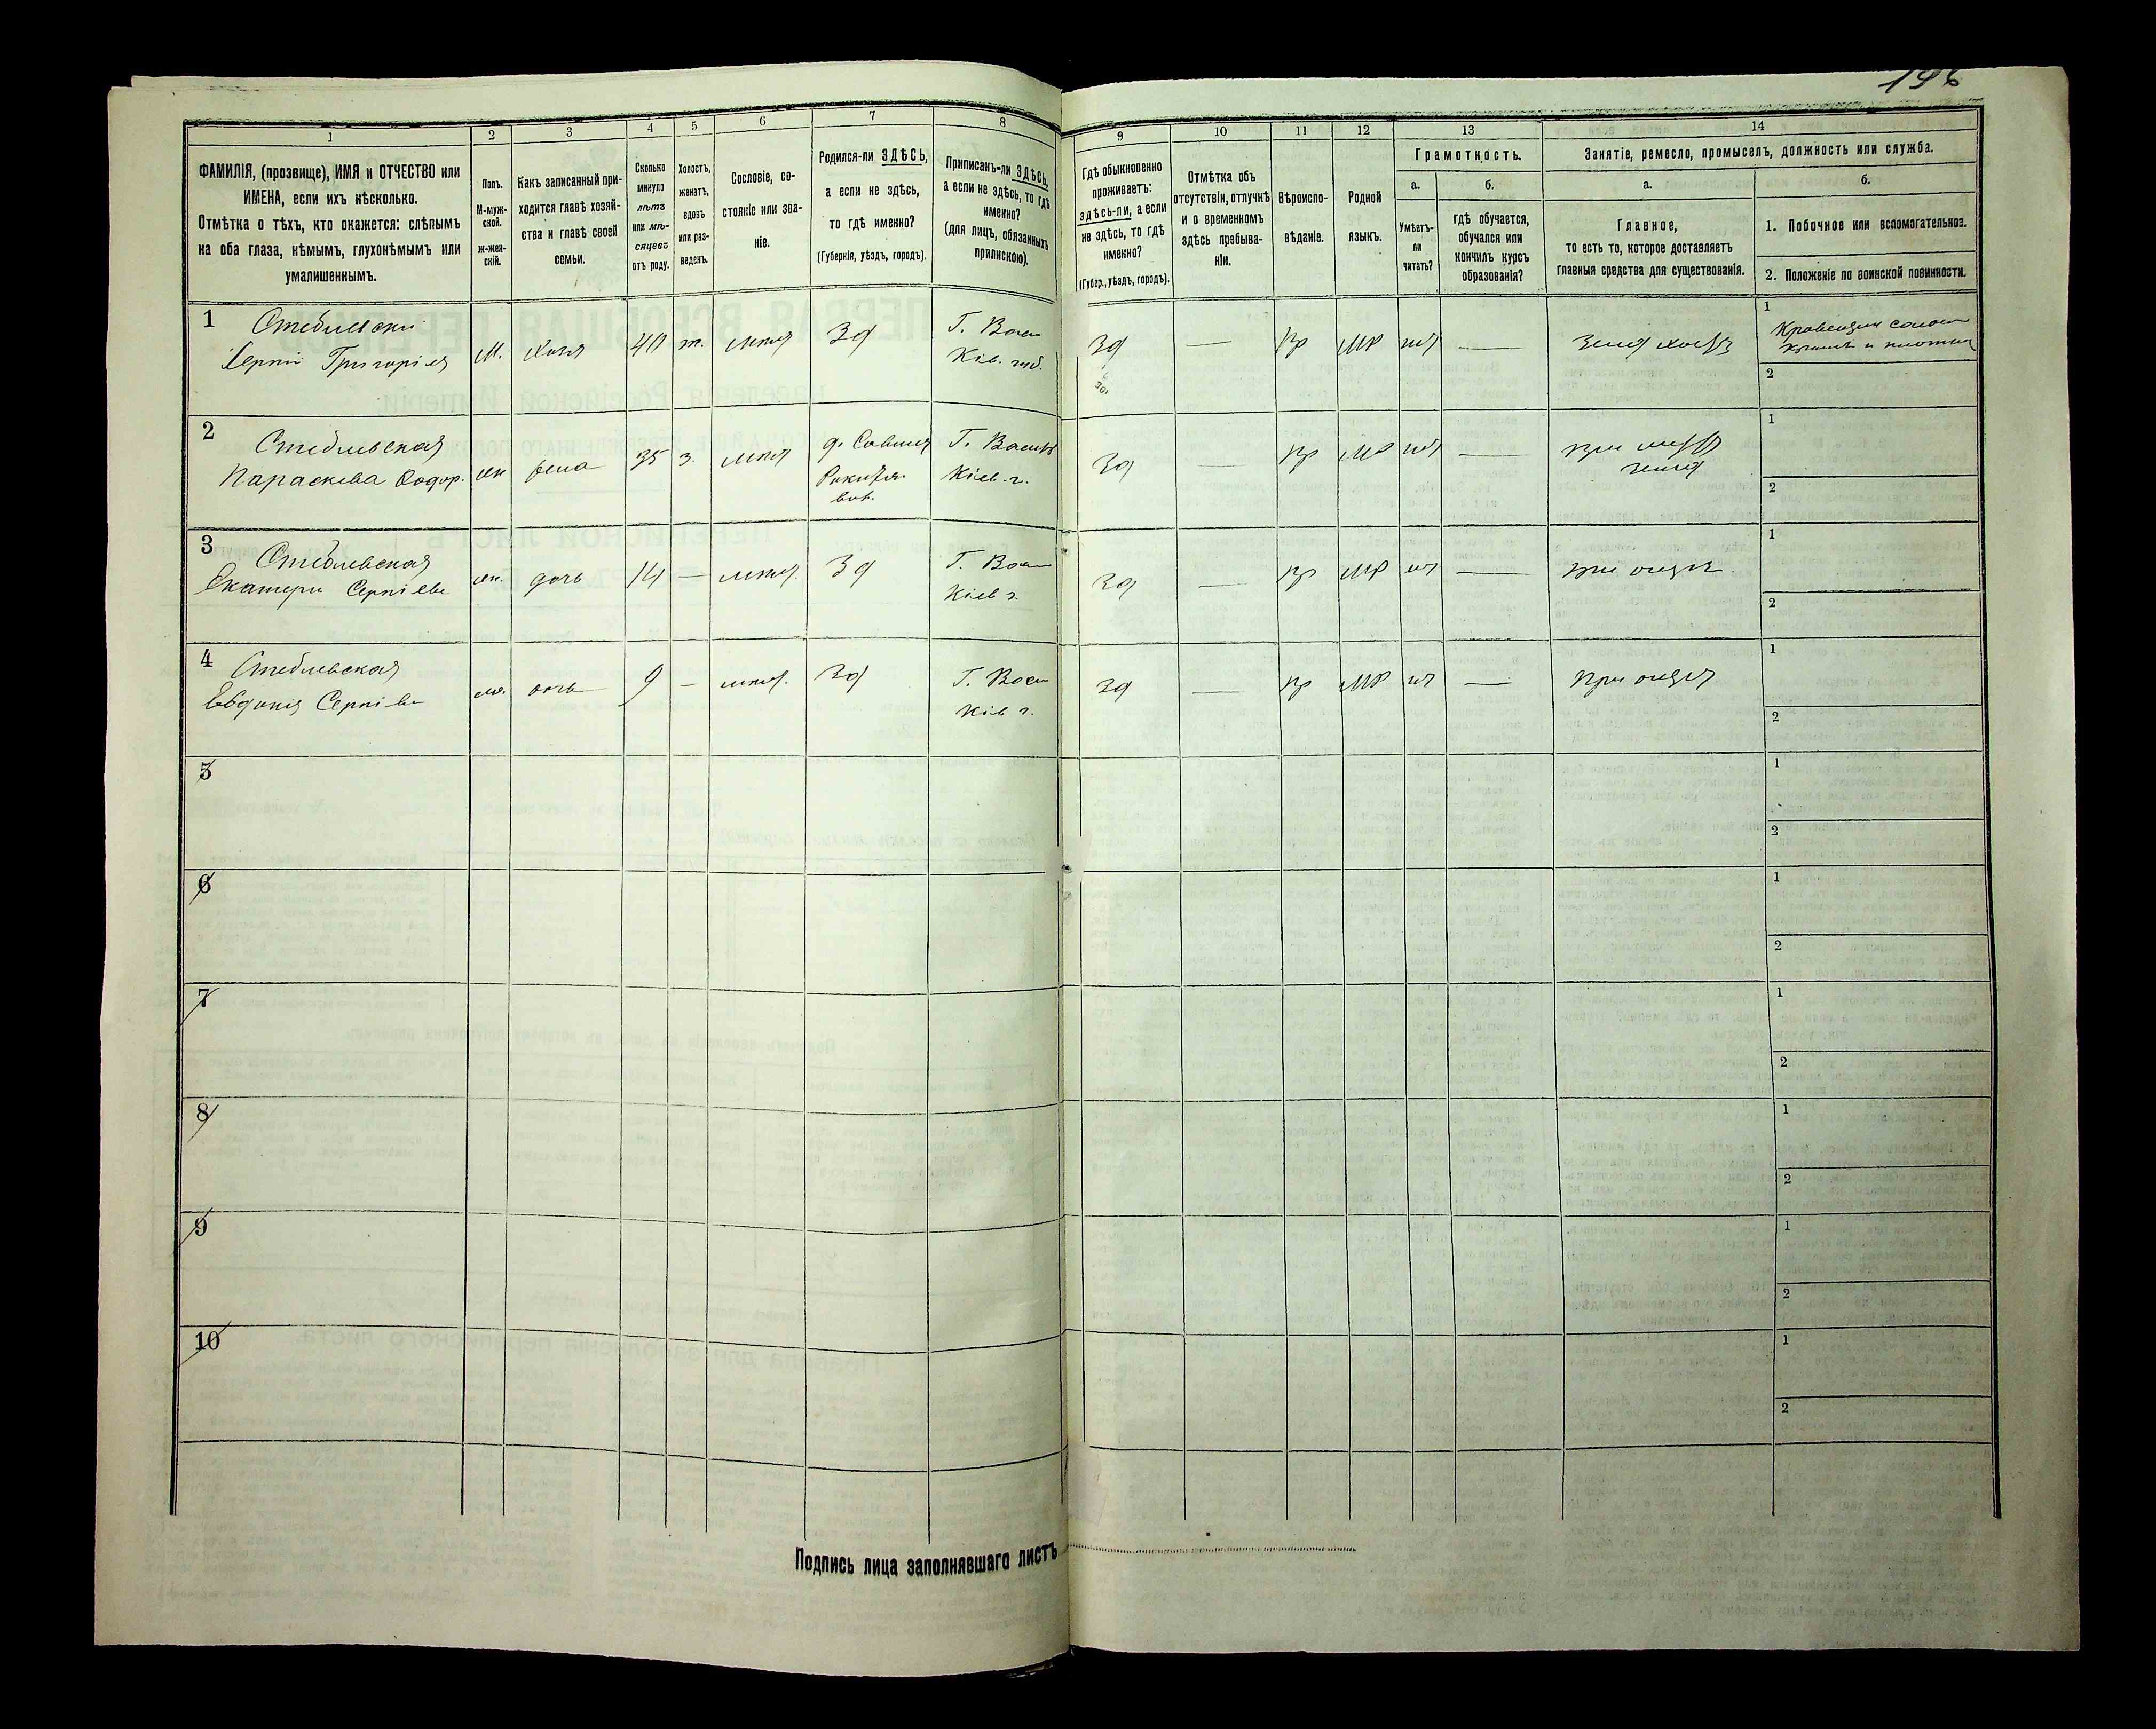 196
1
2
3
4
5
6
7
8
9
10
11
12
13
14
ФАМИЛІЯ, (прозвище), ИМЯ и ОТЧЕСТВО или
ИМЕНА, если ихъ нѣсколько.
Отмѣтка о тѣхъ, кто окажется: слѣпымъ
на оба глаза, нѣмымъ, глухонѣмымъ или
умалишеннымъ.
Полъ.
М-муж-
ской.
ж-жен-
скій.
Какъ записанный при-
ходится главѣ хозяй-
ства и главѣ своей
семьи.
Сколько
минуло
лѣтъ
или мѣ-
сяцевъ
отъ роду.
Холостъ,
женатъ,
вдовъ
или раз-
веденъ.
Сословіе, со-
стояніе или зва-
ніе.
Родился-ли ЗДѢСЬ,
а если не здѣсь,
то гдѣ именно?
(Губернія, уѣздъ, городъ).
Приписанъ-ли ЗДѢСЬ,
а если не здѣсь, то гдѣ
именно?
(для лицъ, обязанныхъ
припискою).
Гдѣ обыкновенно
проживаетъ:
здѣсь-ли, а если
не здѣсь, то гдѣ
именно?
(Губер., уѣздъ, городъ).
Отмѣтка объ
отсутствіи, отлучкѣ
и о временномъ
здѣсь пребыва-
ніи.
Вѣроиспо-
вѣданіе.
Родной
языкъ.
Грамотность.
а.
Умѣетъ-
ли
читать?
б.
гдѣ обучается,
обучался или
кончилъ курсъ
образованія?
Занятіе, ремесло, промыселъ, должность или служба.
а.
Главное,
то есть то, которое доставляетъ
главныя средства для существованія.
б.
1. Побочное или вспомогательное.
2. Положеніе по воинской повинности.
1
Стеблевскій
Сергій Григоріев
М.
хозя
40
ж.
Зд
Г. Васи
Кіев. губ.
Зд
—
Пр
МР
—
1
2
2
Стеблевская
Параскева Федор.
жен
жена
35
з.
Г. Васильк
Кіев. г.
Зд
—
Пр
МР
—
1
2
3
Стеблевская
Екатери Сергіеве
жен.
дочь
14
—
Зд
Г. Васи
Кіев г.
Зд
—
Пр
МР
—
при отцѣ
1
2
4
Стеблевская
Евдокія Сергіеве
дочь
9
—
Зд
Г. Васи
Кіев г.
Зд
—
Пр
МР
—
При отцѣ
1
2
5
1
2
6
1
2
7
1
2
8
1
2
9
1
2
10
1
2
Подпись лица заполнявшаго листъ